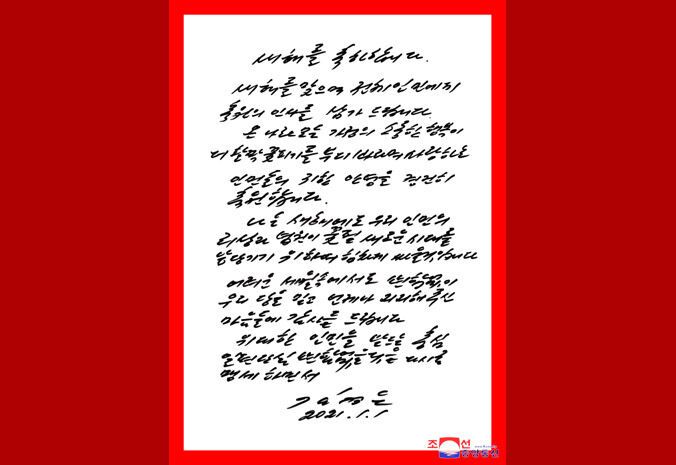 새해를 축하합니다.
새해를 맞으며 전체인민에게
축원의 인사를 삼가 드립니다.
온 나라 모든 가정의 소중한 행복이
더 활짝 꽃피기를 부디 바라며 사랑하는
인민들의 귀한 안녕을 경건히
축원합니다.
나는 새해에도 우리 인민의
리상과 념원이 꽃필 새로운 시대를
앞당기기 위하여 힘차게 싸울것입니다
어려운 세월속에서도 변함없이
우리 당을 믿고 언제나 지지해주신
마음들에 감사를 드립니다
위대한 인민을 받드는 충심
일편단심 변함없을것을 다시금
맹세하면서
김정은
2021.1.1
조선
중앙통신